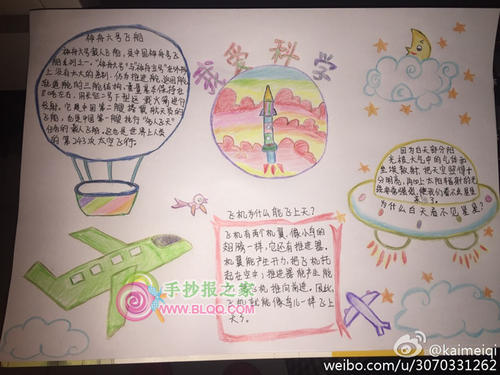 神舟六号飞船
神舟六号载人飞船，是中国神舟号飞
船系列之一。"神舟六号"与"神舟五号"在外形
上没有大大的差别，仍为推进舱、返回舱、
轨道舱的三舱结构，重量基本保持在
8吨左右，用长征二号下型运载火箭进行
发射。它是中国第二艘搭载航天员的
飞船，也是中国第一艘执行"多人飞天"
任务的载人飞船。这也是世界上人类
的第243次太空飞行。
我爱科学
因为白天部分阳
光被大气中的气体和
尘埃散射，把天空照得十
分明亮，再加上太阳辐射的光
线非常强烈，使我们看不出星星
了。
为什么白天看不见星星？
飞机为什么能飞上天？
飞机有两个机翼，像小鸟的
翅膀一样，它还有推进器。
机翼能产生升力，把飞机托
起在空中；推进器能产生能
飞机推向前进。因此，
飞机就能像鸟儿一样飞上
天了。
手抄报之家
WWW.BLQQ.COM
@kaimeiqi
weibo.com/u/3070331262